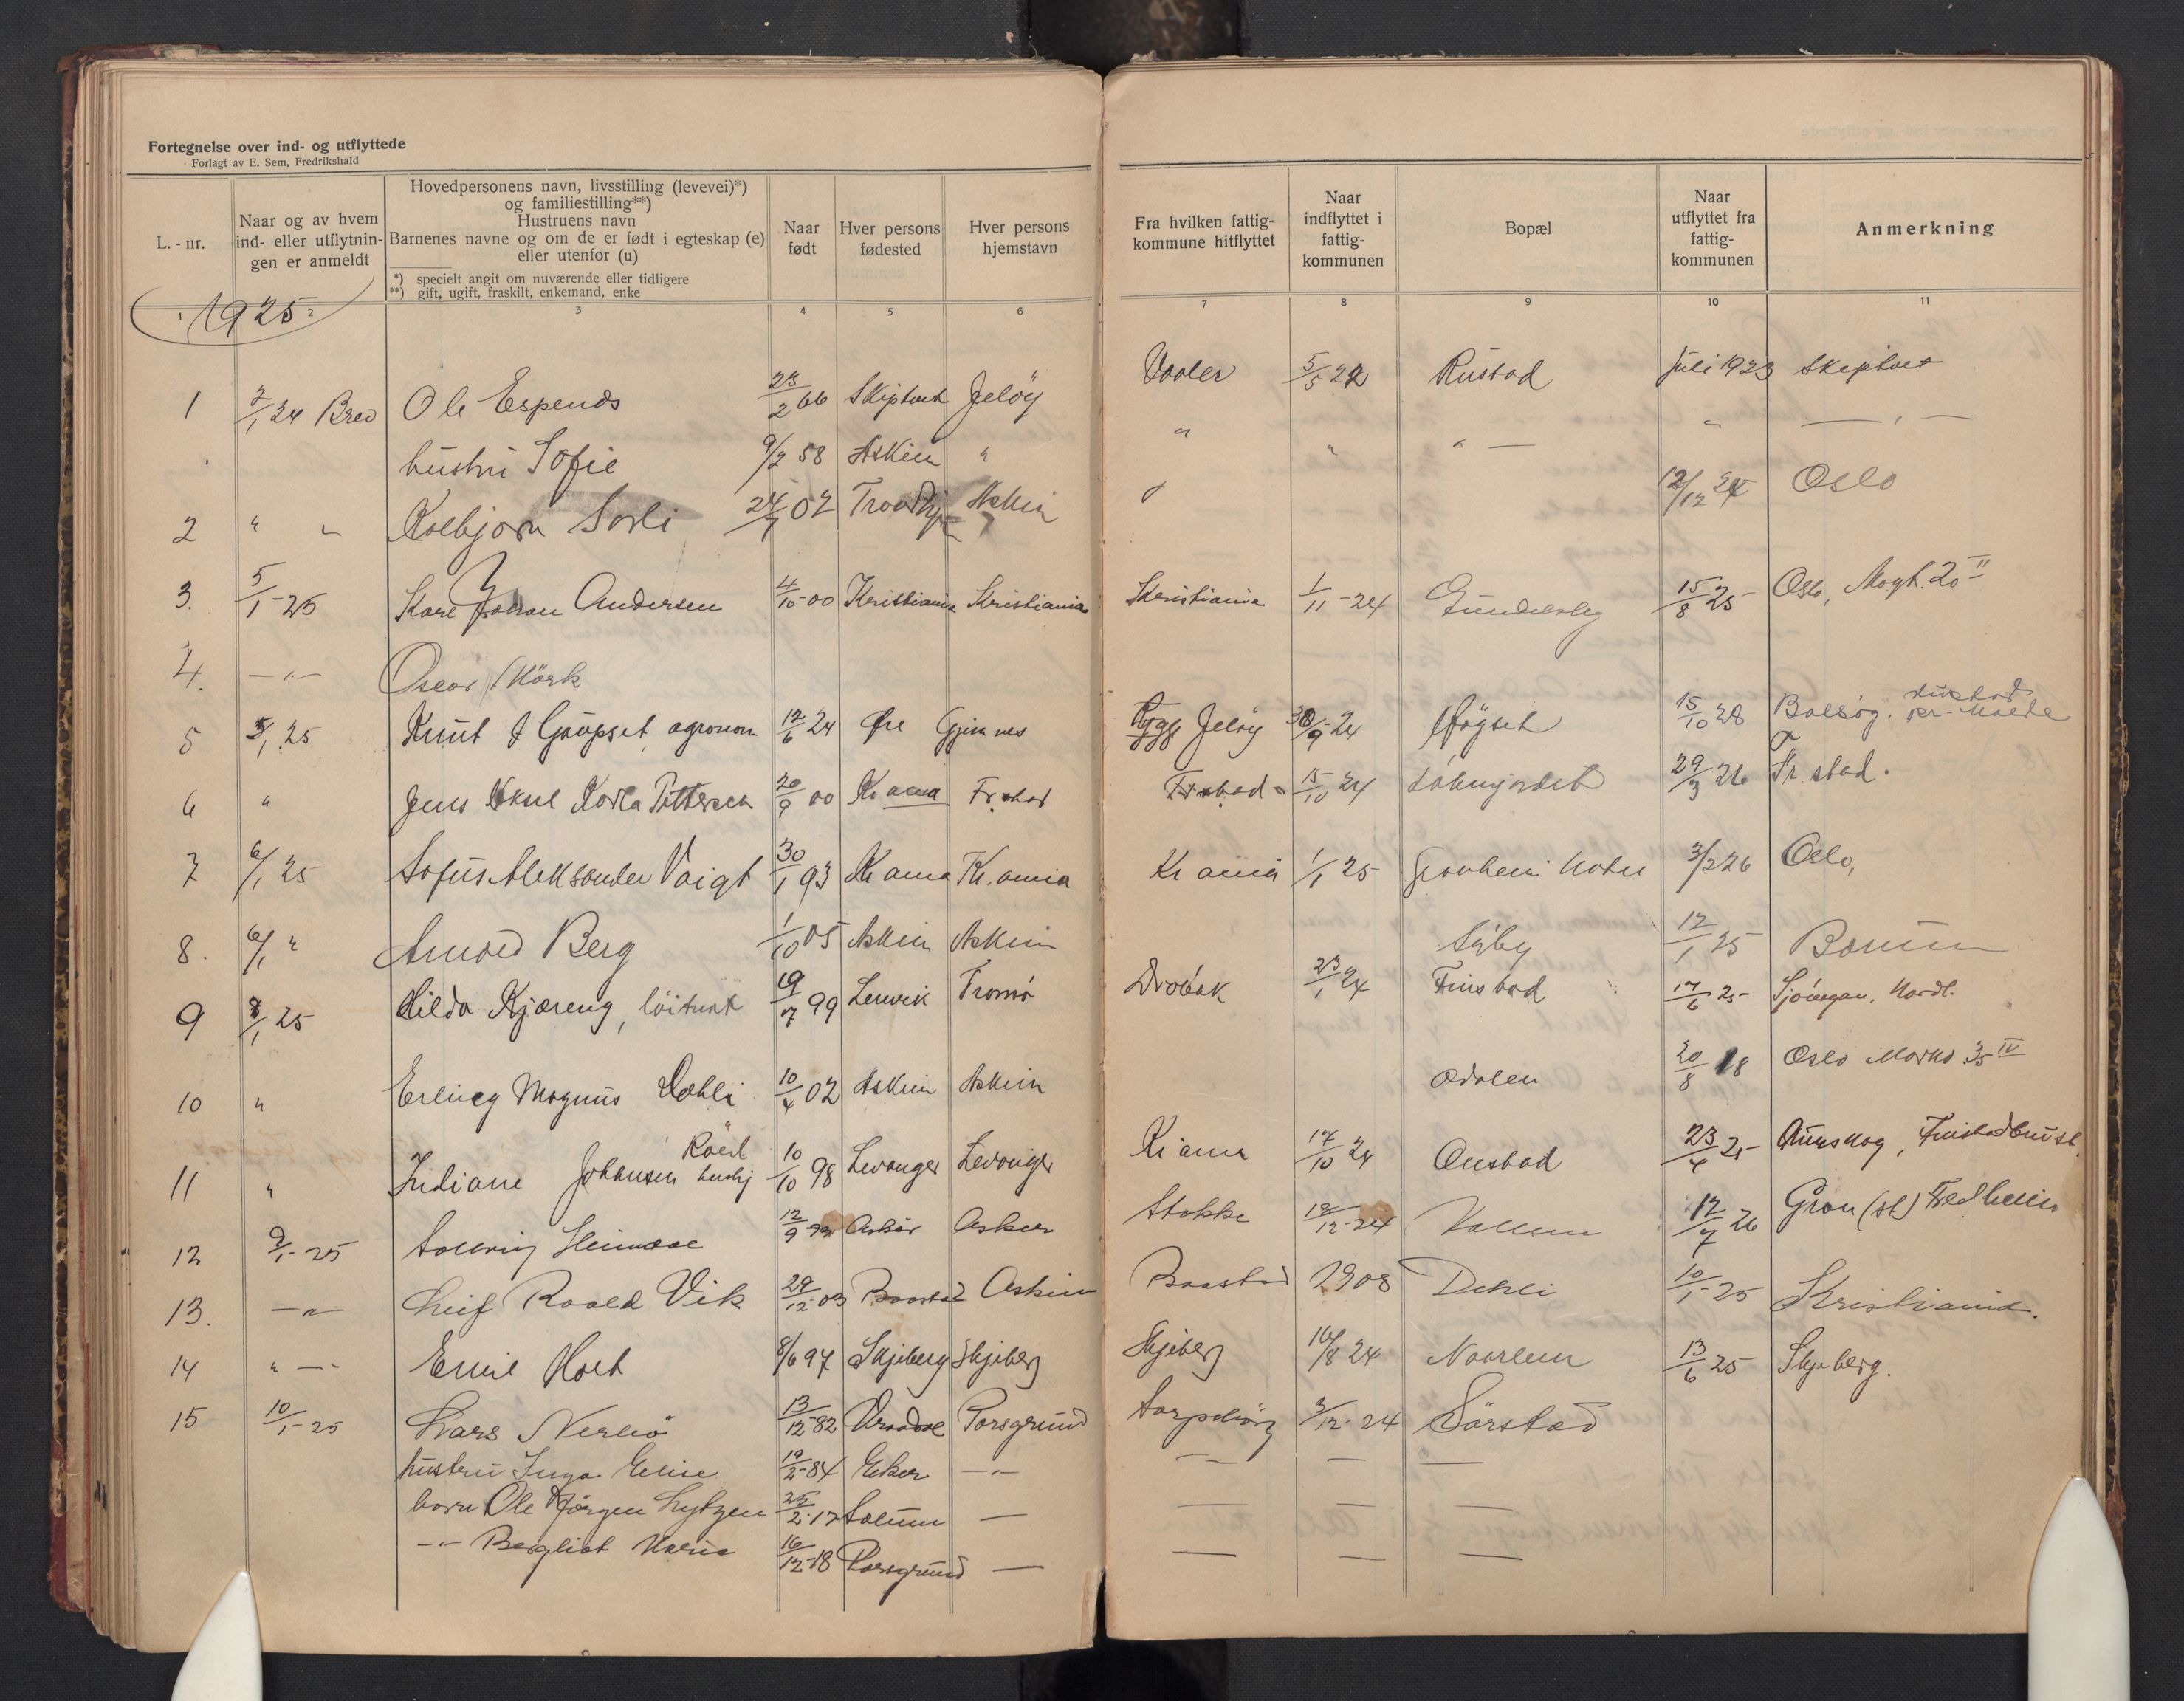 Fortegnelse over ind- og utflyttede
Forlagt av E. Sem, Fredrikshald
L.-nr.
Naar og av hvem
ind- eller utflytnin-
gen er anmeldt
Hovedpersonens navn, livsstilling (levevei)*)
og familiestilling**)
Hustruens navn
Barnenes navne og om de er født i egteskap (e)
eller utenfor (u)
*) specielt angit om nuværende eller tidligere
**) gift, ugift, fraskilt, enkemand, enke
Naar
født
Hver persons
fødested
Hver persons
hjemstavn
Fra hvilken fattig-
kommune hitflyttet
Naar
indflyttet i
fattig-
kommunen
Bopæl
Naar
utflyttet fra
fattig-
kommunen
Anmerkning
1 2 3 4 5 6 7 8 9 10 11
1925
1 2/1 24 Brev Ole Espends 23/2 66 Skiptvet Jeløy Vaaler 5/5 22 Rustad Juli 1923 Skiptvet
hustru Sofie 9/2 58 Askim " " " " — " — " —
2 " " Kolbjørn Sørli 24/7 02 Askim 12/12 24 Oslo
3. 5/1-25 Karl Johan Andersen 4/10-00 Kristiania Kristiania Kristiania 1/11-24 Gunderby 15/8 25 Oslo, 20 II
4. — " — Oscar Mörk
5 5/1 25 Knut J Gjøpset agronom 12/6 24 Øre Gjemnes Rygge Jeløy 30/9-24 Høgset 15/10 28 Bolsøy. pr. Molde
6 " Jens Aksel Karlo Pettersen 20/9 00 Kr ania Fr.stad Fr.stad 15/10 24 29/3 26 Fr. stad.
7 6/1 25 Sofus Aleksander Voigt 30/1 93 Kr ania Kr. ania Kr ania 1/1 25 Hotel 3/2 26 Oslo,
8. 6/1 " Arnold Berg 1/10 05 Askim Askim Syby 12/1 25 Bærum
9 8/1 25 Hilda Kjæreng, 19/7 99 Lenvik Tromsø Drøbak 23/1 24 Finstad 17/6 25 Nordl.
10 " Erling Magnus Dæhli 10/4 02 Askim Askim Ødalen 20/8 18 Oslo 35 IV
11 " Indiane Johansen Röed 10/10 98 Levanger Levanger Kr ania 17/10 24 Onstad 23/4 25 Aurskog,
12 9/1-25 Solveig 12/9 99 Asker Asker Stokke 18/12-24 Vollum 12/7 26 Gran (st) Fredheim
13. — " — Leif Roald Vik 29/12-03 Baastad Askim Baastad 1908 Dehli 10/1-25 Kristiania.
14 " — " Emil Holt 8/6 97 Skjeberg Skjeberg Skjeberg 16/8 24 13/6 25 Skjeberg.
15 10/1-25 Lars Nerbø 13/12-82 Porsgrund Sarpsborg 3/12-24 Sörstad
hustru Inga Elise 19/2-84 Eker — " — — — —
barn Ole Jörgen Lytzen 25/2-17 Solum — — — —
— " — Bergliot Marie 16/12-18 Porsgrund — — — —